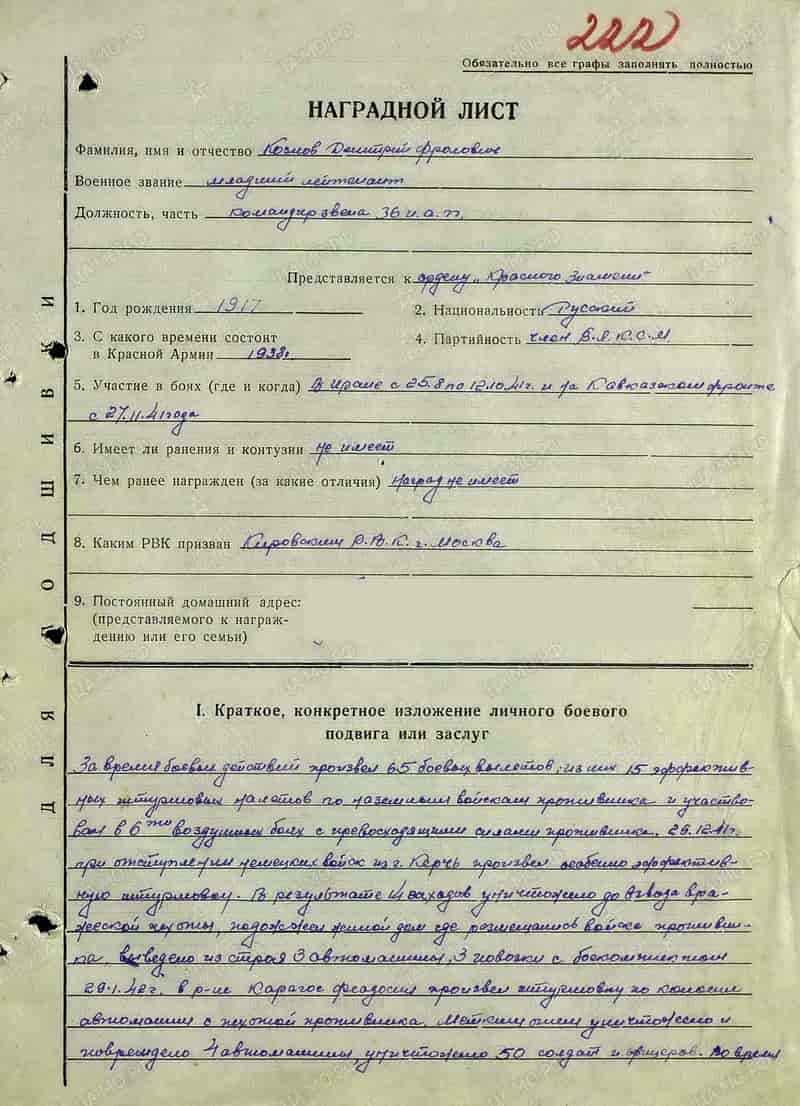 222
Обязательно все графы заполнять полностью
НАГРАДНОЙ ЛИСТ
Фамилия, имя и отчество Козлов Дмитрий Фролович
Военное звание младший лейтенант
Должность, часть командир звена 36 и.а.п.
Представляется к ордену „Красного Знамени"
1. Год рождения 1917 2. Национальность Русский
3. С какого времени состоит 4. Партийность член В.Л.К.С.М.
в Красной Армии 1938
5. Участие в боях (где и когда) В Иране с 25.8 по 12.10.41г. и на Кавказском фронте
с 27.11.41 года
6. Имеет ли ранения и контузии не имеет
7. Чем ранее награжден (за какие отличия) Наград не имеет
8. Каким РВК призван Кировским Р.В.К. г. Москва
9. Постоянный домашний адрес:
(представляемого к награж-
дению или его семьи)
ДЛЯ ПОДШИВКИ
I. Краткое, конкретное изложение личного боевого
подвига или заслуг
За время боевых действий произвел 65 боевых вылетов, из них 15 эффектив-
ных штурмовых налетов по наземным войскам противника и участво-
вал в 6ти воздушных боях с превосходящими силами противника. 29.12.41г.
при отступлении немецких войск из г. Керчь произвел особенно эффектив-
ную штурмовку. В результате 4 заходов уничтожено до взвода вра-
жеской пехоты, подожжен жилой дом где размещались войска противни-
ка, выведено из строя 3 автомашины, 3 повозки с боекомплектом
29.1.42г. в р-не Карагоз Феодосия произвел штурмовку по колонне
автомашин с пехотой противника. Метким огнем уничтожено и
повреждено 4 автомашины, уничтожено 50 солдат и офицеров. Во время